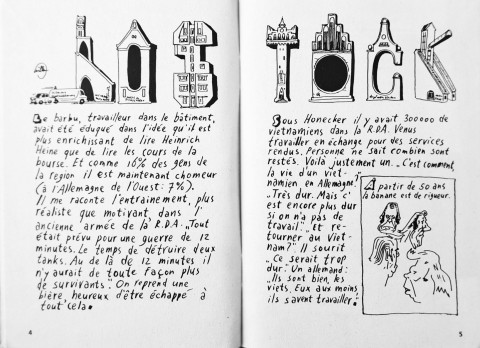 ROSTOCK
Le barbu, travailleur dans le bâtiment,
avait été éduqué dans l'idée qu'il est
plus enrichissant de lire Heinrich
Heine que de lire les cours de la
bourse. Et comme 16% des gens de
la region il est maintenant chomeur
(à l'Allemagne de l'Ouest: 7%).
Il me raconte l'entrainement, plus
réaliste que motivant, dans l'
ancienne armée de la R.D.A: „Tout
était prévu pour une guerre de 12
minutes. Le temps de détruire deux
tanks. Au de là de 12 minutes il
n'y aurait de toute façon plus
de survivants." On reprend une
bière, heureux d'être échappé à
tout cela.
4
Sous Honecker il y avait 300000 de
vietnamiens dans la R.D.A. Venus
travailler en échange pour des services
rendus. Personne ne sait combien sont
restés. Voilà justement un. „C'est comment,
la vie d'un viet-
namien en Allemagne?"
„Très dur. Mais c'
est encore plus dur
si on n'a pas de
travail". „ et re-
tourner au Viet-
nam?" Il sourit
„Ce serait trop
dur". Un allemand:
„Ils sont bien, les
viets. Eux au moins
ils savent travailler".
A partir de 50 ans
la banane est de rigueur.
5